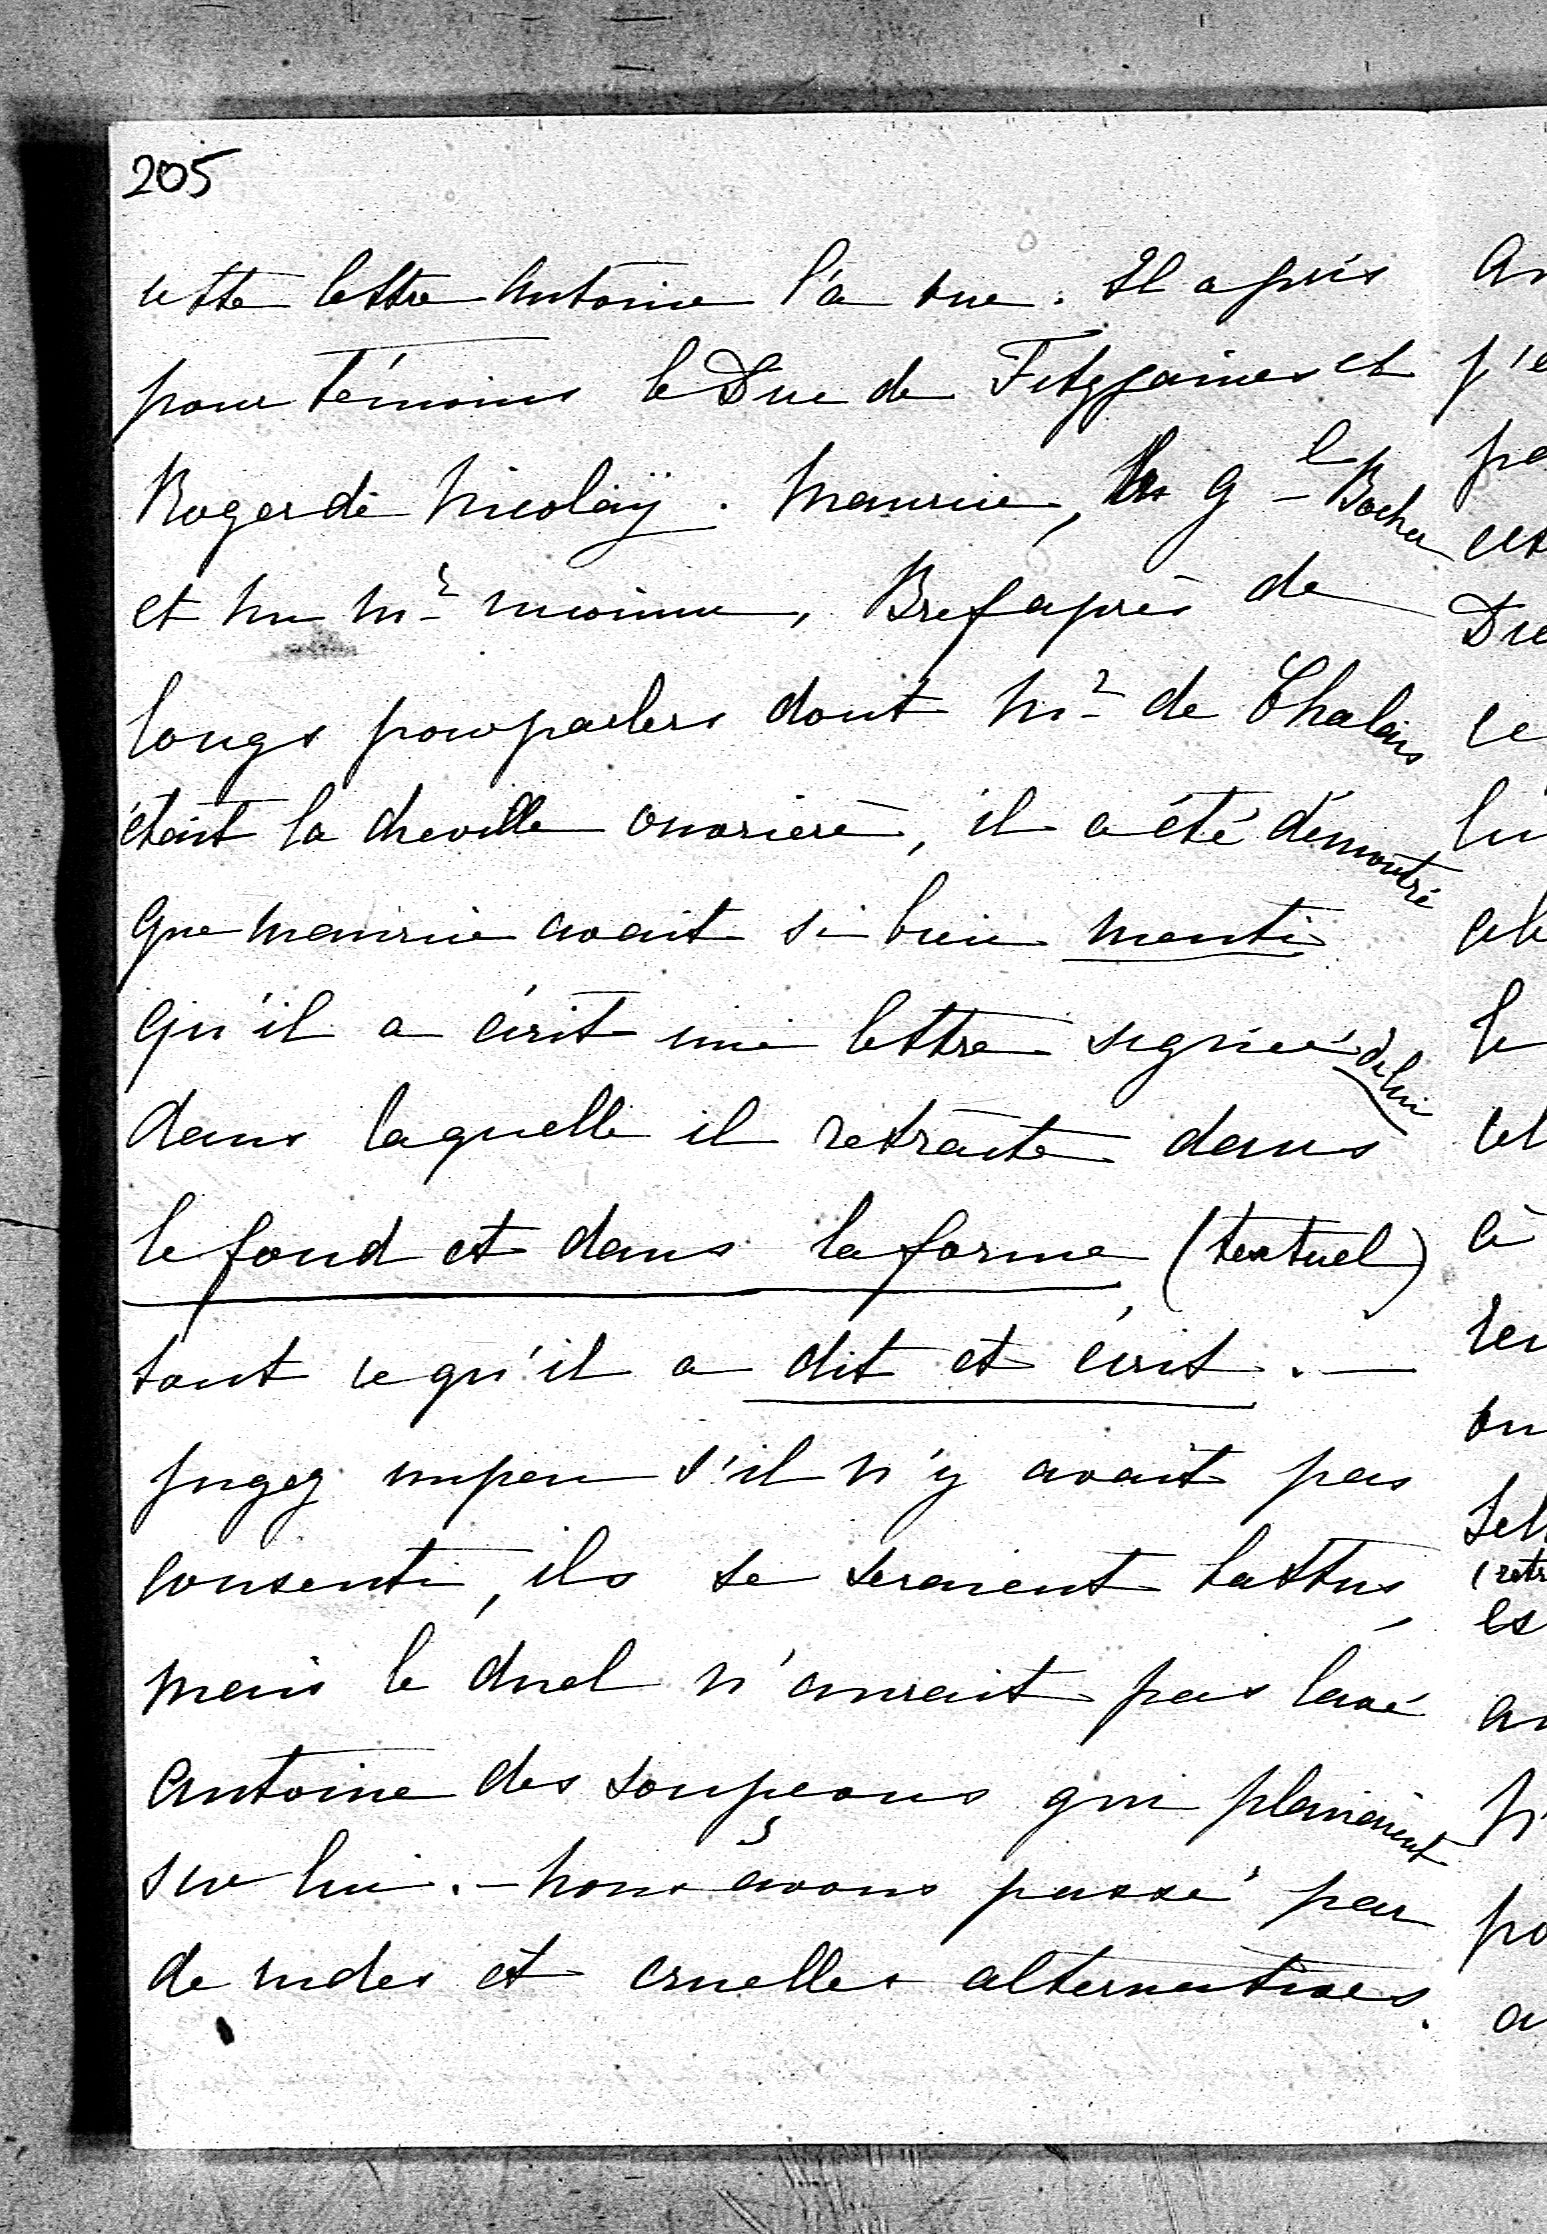 205
cette lettre Antoine l'a vue. Il a pris
pour témoins le Duc de Fitzjames et
Roger de Nicolaÿ. Maurice, le Gᵃˡ Bocher
et un Mʳ inconnu, Bref après de
longs pourparlers dont Mʳ de Chalais
était la cheville ouvrière, il a été démontré
que Maurice avait si bien menti
qu'il a écrit une lettre signée de lui
dans laquelle il retracte dans
le fond et dans la forme (textuel)
tout ce qu'il a dit et écrit. —
Jugez un peu s'il n'y avait pas
consenti, ils se seraient battus,
mais le duel n'aurait pas lavé
Antoine des soupçons qui planaient
sur lui. — Nous avons passé par
de rudes et cruelles alternatives.